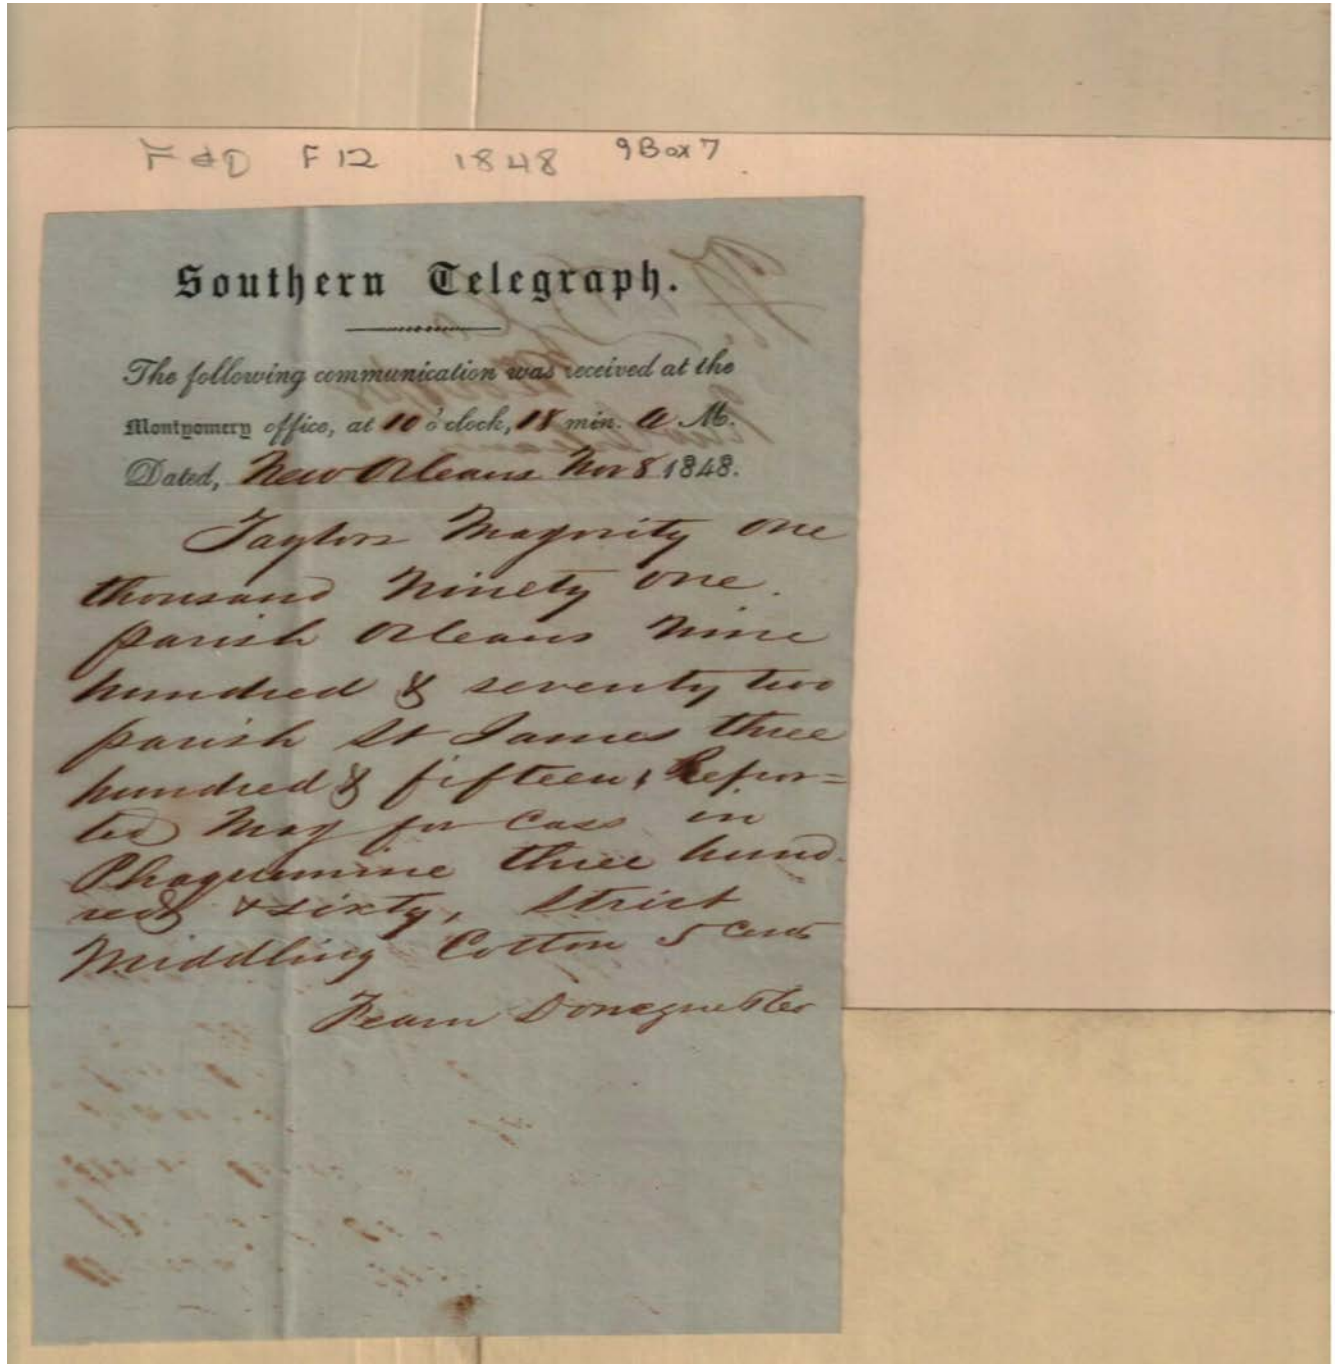 F & D F 12 1848 9 Box 7
Southern Telegraph.
The following communication was received at the
Montgomery office, at 10 o'clock, 18 min. A M.
Dated, New Orleans Nov 8 1848.
Taylors Majority one
thousand Ninety one.
parish Orleans Nine
hundred & seventy two
parish St James three
hundred & fifteen, Repor=
ted Maj for Cass in
three hund-
red & sixty, Strict
Middling Cotton 5 Cents
Fearn